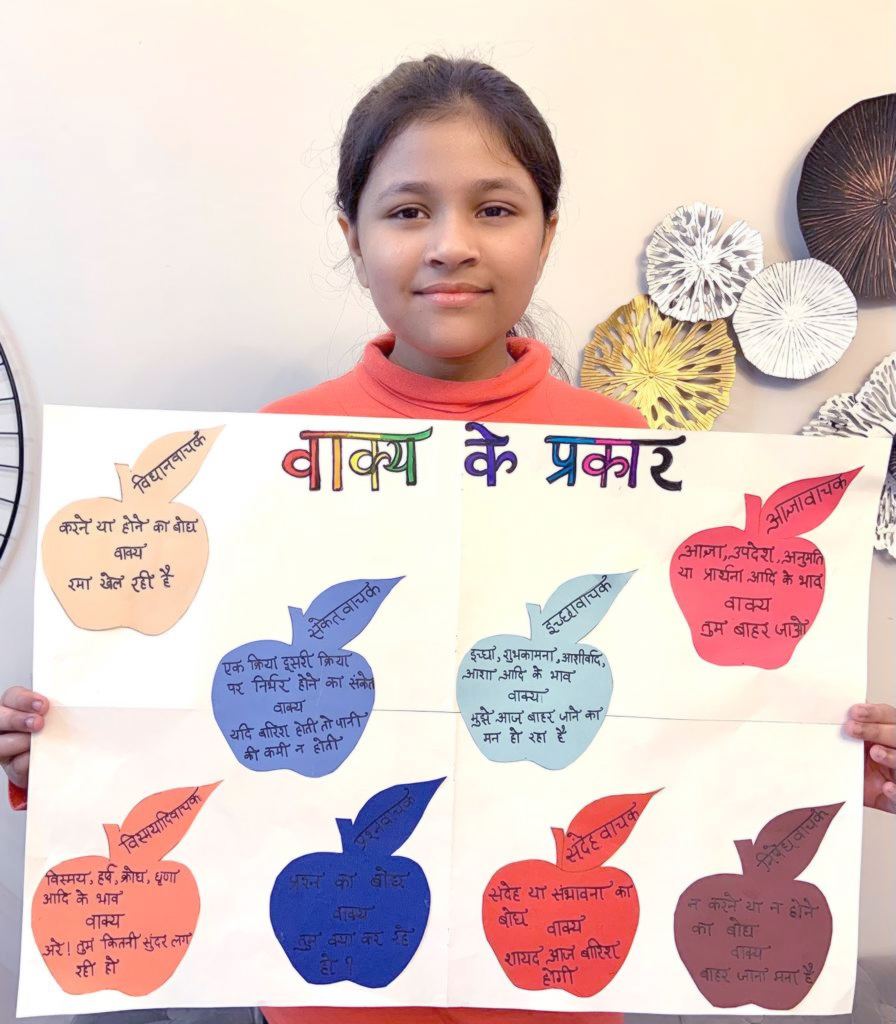 वाक्य के प्रकार
विधानवाचक
करने या होने का बोध
वाक्य
रमा खेल रही है
संकेतवाचक
एक क्रिया दूसरी क्रिया
पर निर्भर होने का संकेत
वाक्य
यदि बारिश होती तो पानी
की कमी न होती
इच्छावाचक
इच्छा, शुभकामना, आशीर्वाद,
आशा आदि के भाव
वाक्य
मुझे आज बाहर जाने का
मन हो रहा है
आज्ञावाचक
आज्ञा, उपदेश, अनुमति
या प्रार्थना आदि के भाव
वाक्य
तुम बाहर जाओ
विस्मयादिवाचक
विस्मय, हर्ष, क्रोध, घृणा
आदि के भाव
वाक्य
अरे! तुम कितनी सुंदर लग
रही हो
प्रश्नवाचक
प्रश्न का बोध
वाक्य
तुम क्या कर रहे
हो?
संदेहवाचक
संदेह या संभावना का
बोध
वाक्य
शायद आज बारिश
होगी
निषेधवाचक
न करने या न होने
का बोध
वाक्य
बाहर जाना मना है